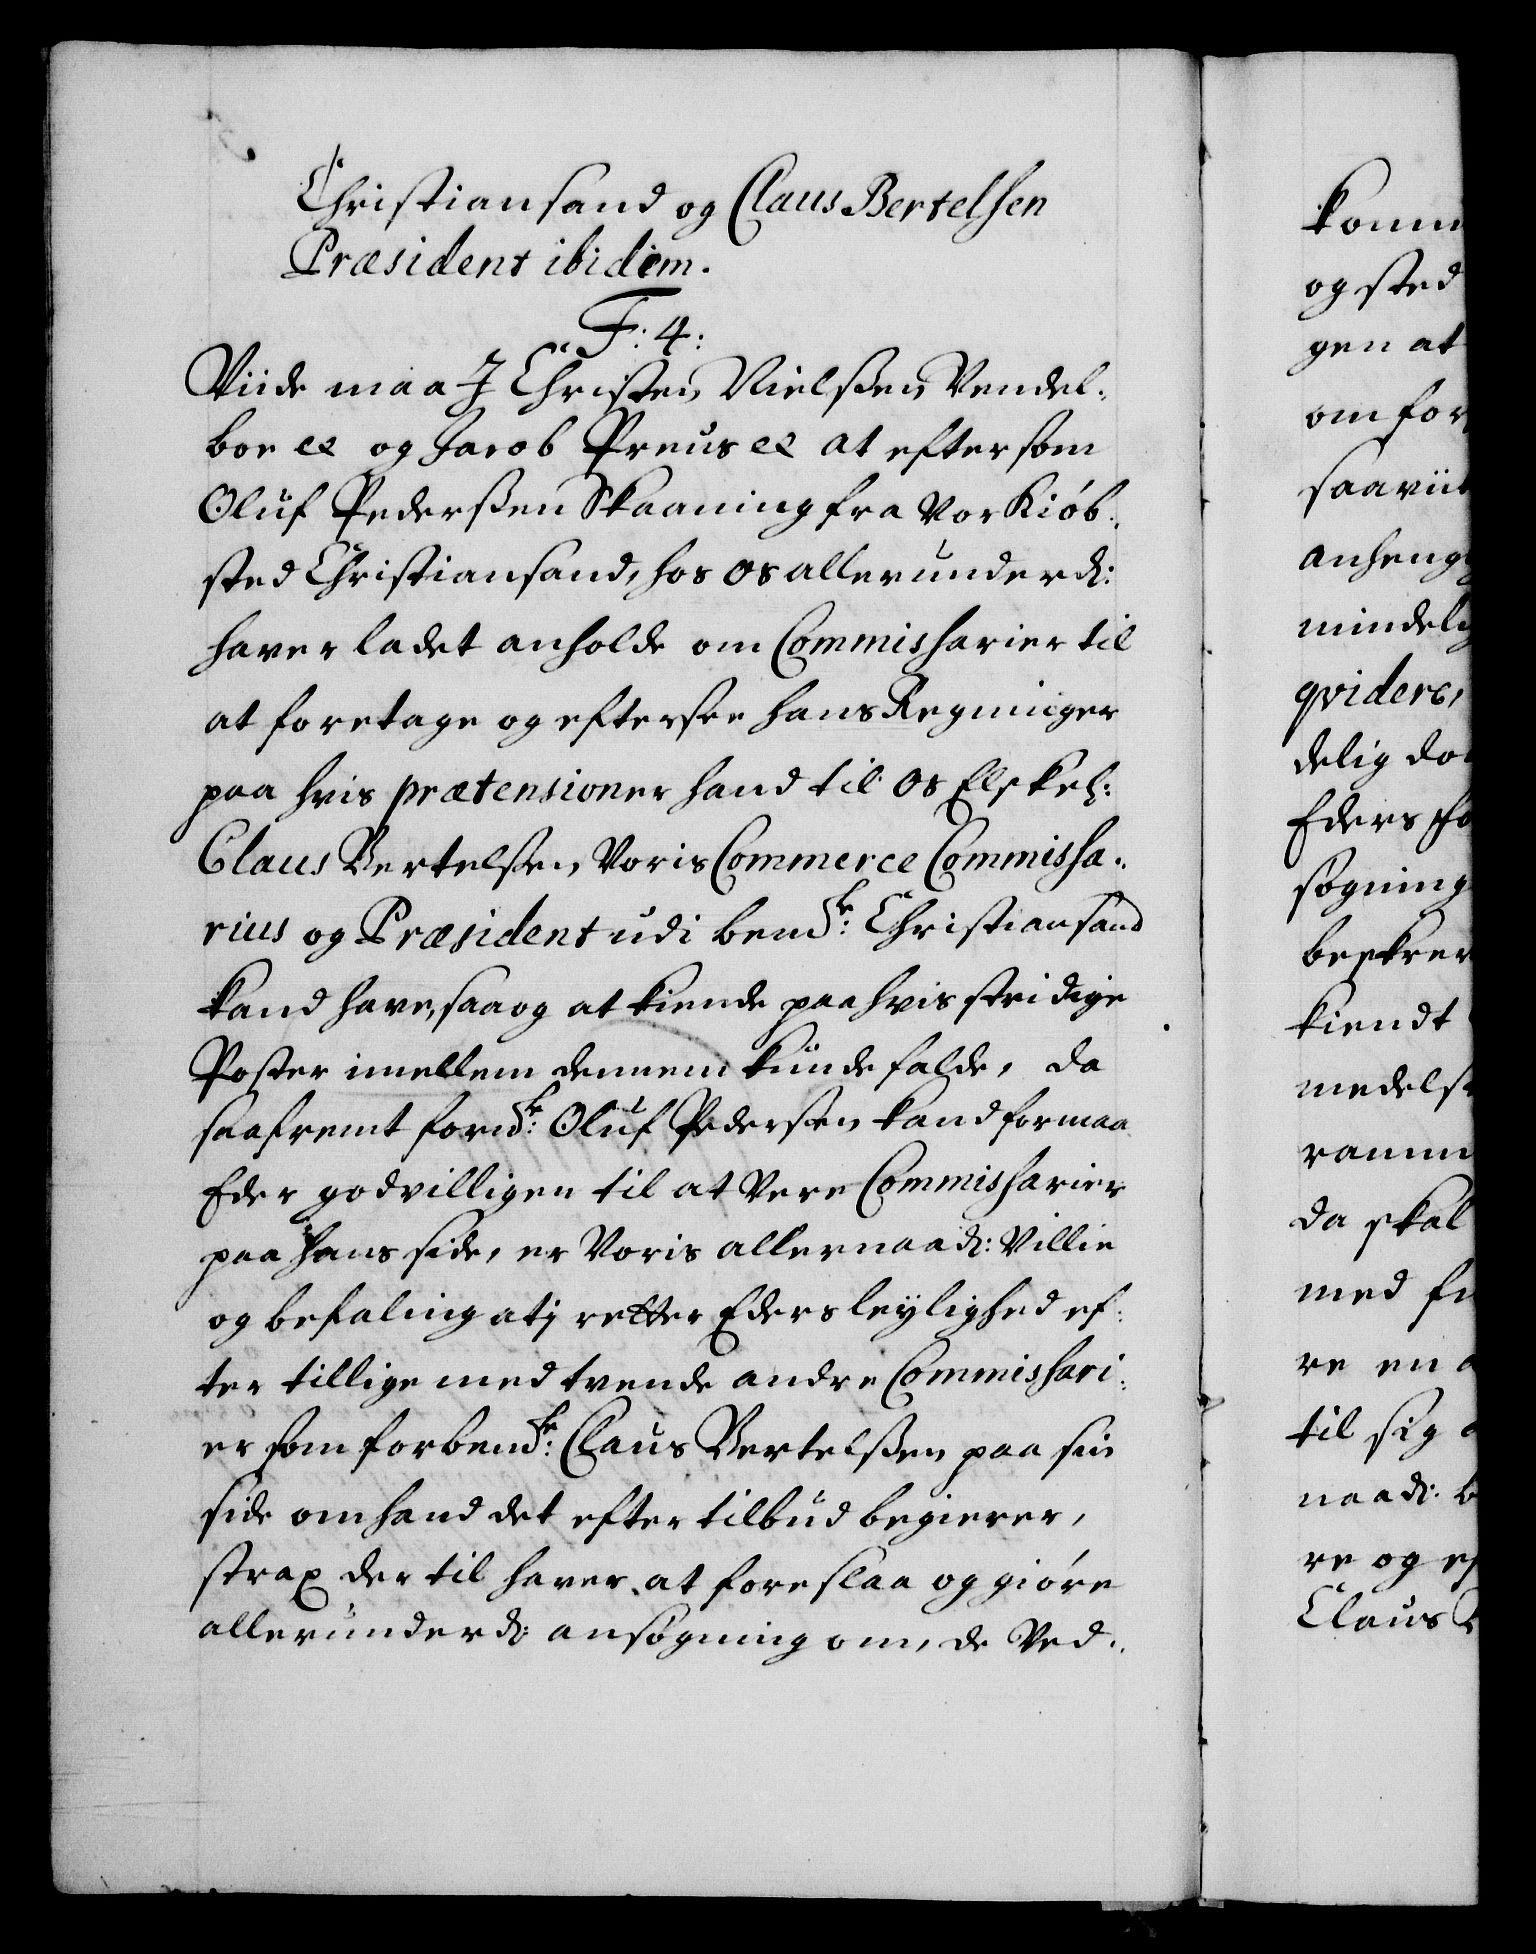 Christiansand og Claus Bertelsen
Præsident ibidem.
F: 4:
Viide maa I Christen Nielssen Vendel:
boe etc og Jacob Preus etc at eftersom
Oluf Pederssen Skaaning fra vor Kiöb:
sted Christiansand, hos os allerunderd:
haver ladet anholde om Commissarier til
at foretage og eftersee hans Regninger
paa hvis prætensioner hand til os Elskel:
Claus Bertelssen, Voris Commerce Commissa:
rius og Præsident udi bemte: Christiansand
kand have, saa og at kiende paa hvis stridige
Poster imellem dennem kunde falde, da
saafremt formte: Oluf Pederssen kand formaa
Eder godvilligen til at Vere Commissarier
paa hans side, er Voris allernaad: Villie
og befaling at j retter Eders leylighed ef:
ter tillige med tvende andre Commissari:
er som forbemte: Claus Bertelssen paa sin
side om hand det efter tilbud begierer,
strax der til haver at foreslaa og giöre
allerunderd: ansögning om, de Ved:
komm
og sted
gen at
om for
saa viit
anheng
mindel
qvidere,
delig do
Eders
sögning
beskrev
kiendt
medelst
ramm
da skal
med fu
re en
til sig
naad:
re og
Claus